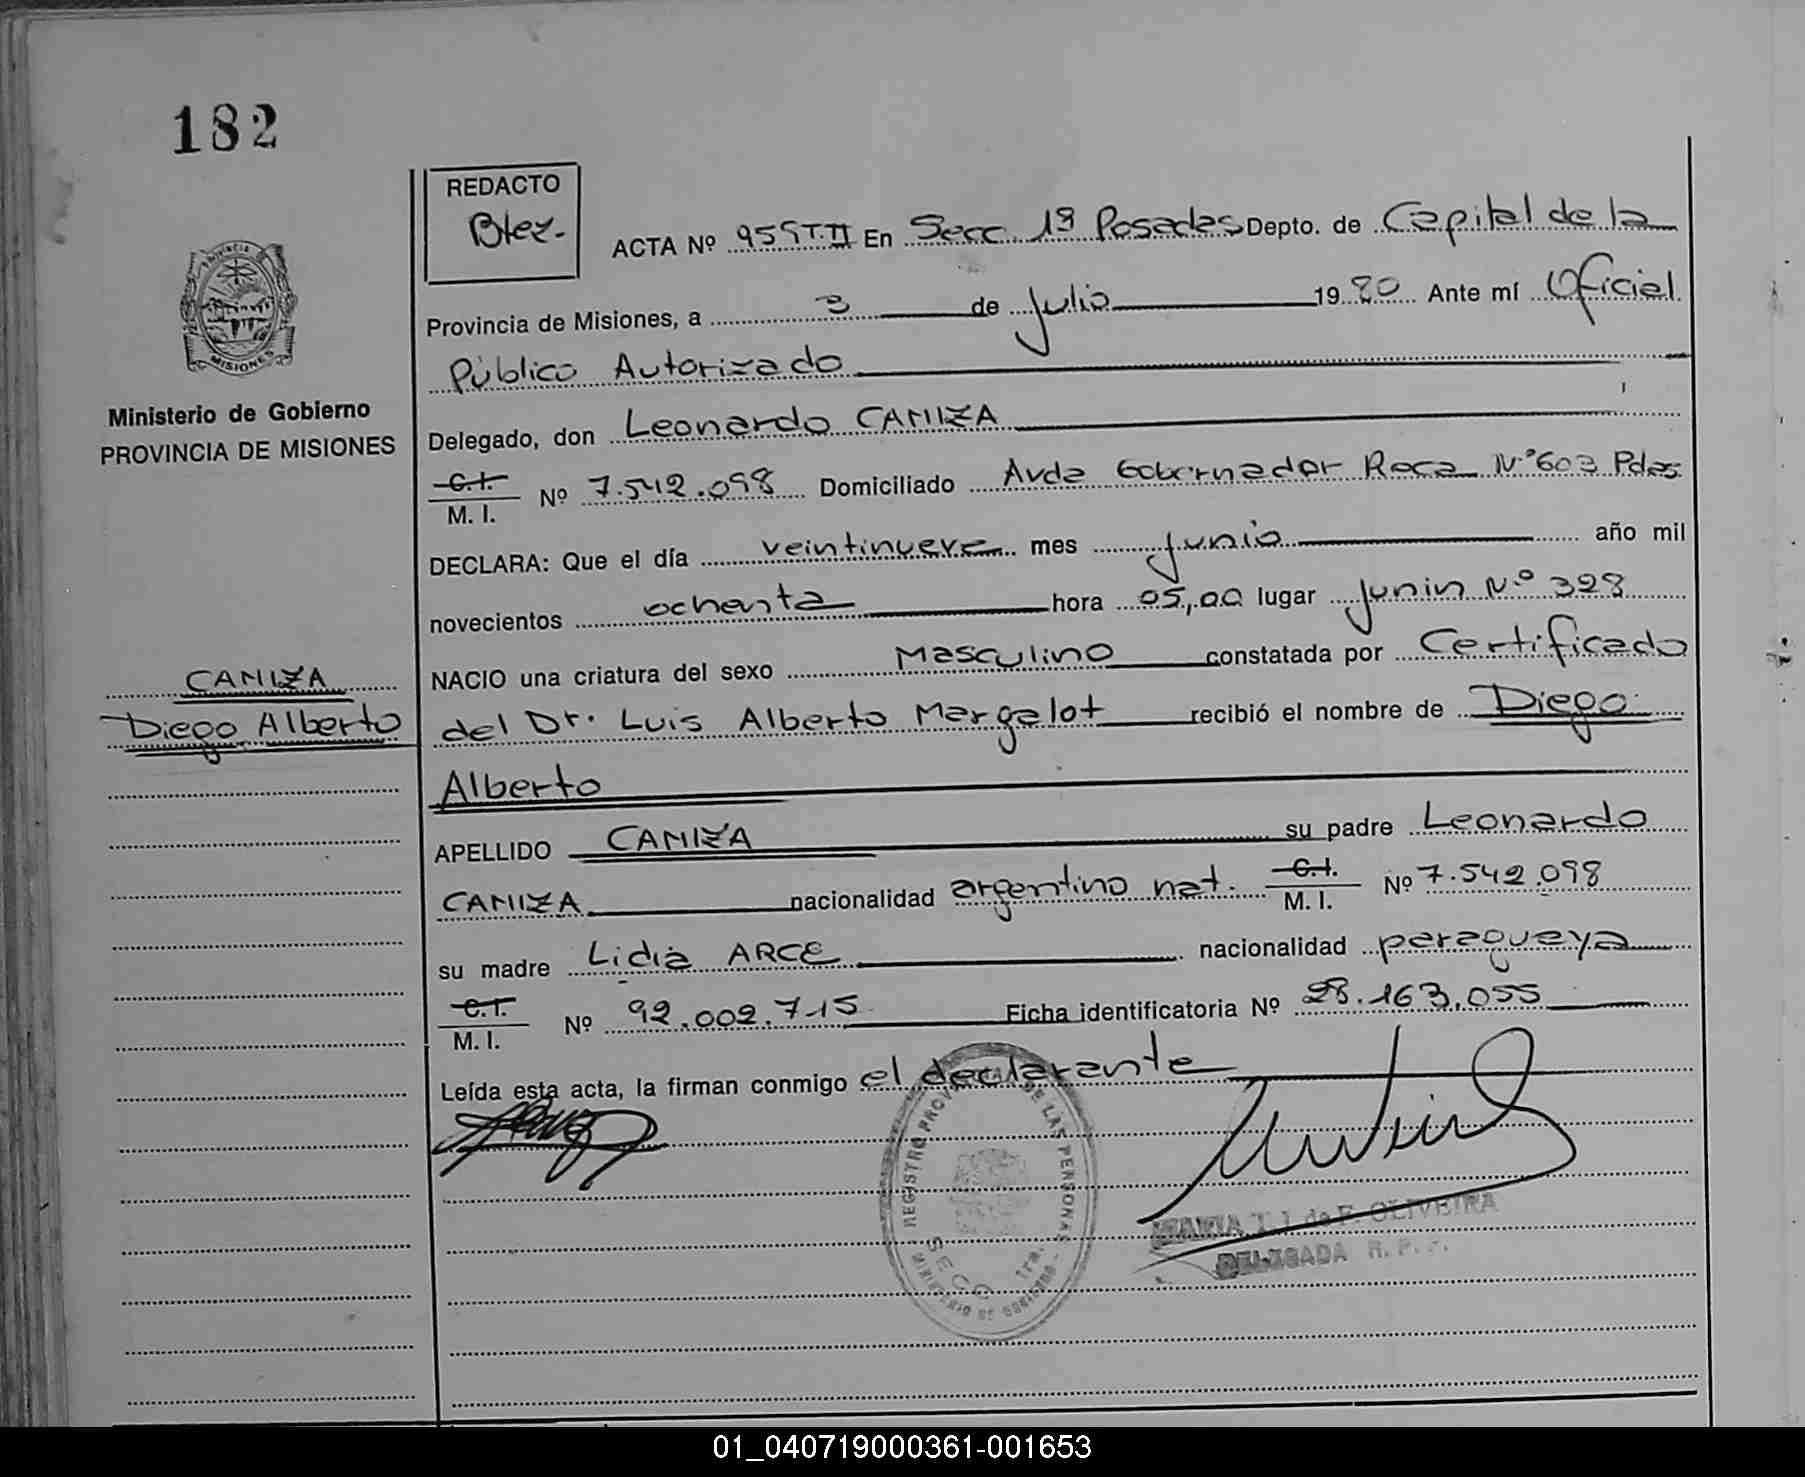 182
REDACTO
Btez.
ACTA Nº 955 T.II En Secc. 1ª Posadas Depto. de Capital de la
Provincia de Misiones, a 3 de Julio 1980 Ante mí Oficial
Público Autorizado
Delegado, don Leonardo CANIZA
C.I. M.I. Nº 7.542.098 Domiciliado Avda Gobernador Roca Nº 603 Pdas
DECLARA: Que el día veintinueve mes junio año mil
novecientos ochenta hora 05,00 lugar Junin Nº 328
NACIO una criatura del sexo Masculino constatada por Certificado
del Dr. Luis Alberto Mergalot recibió el nombre de Diego
Alberto
APELLIDO CANIZA su padre Leonardo
CANIZA nacionalidad argentino nat. C.I. M.I. Nº 7.542.098
su madre Lidia ARCE nacionalidad paragueya
C.I. M.I. Nº 92.002.715 Ficha identificatoria Nº 28.163.055
Leída esta acta, la firman conmigo el declarante
PROVINCIA
MISIONES
Ministerio de Gobierno
PROVINCIA DE MISIONES
CANIZA
Diego Alberto
REGISTRO PROVINCIAL DE LAS PERSONAS
SECC. 1ra.
MINISTERIO DE GOBIERNO
MARIA T. I. de F. OLIVEIRA
DELEGADA R. P. P.
01_040719000361-001653